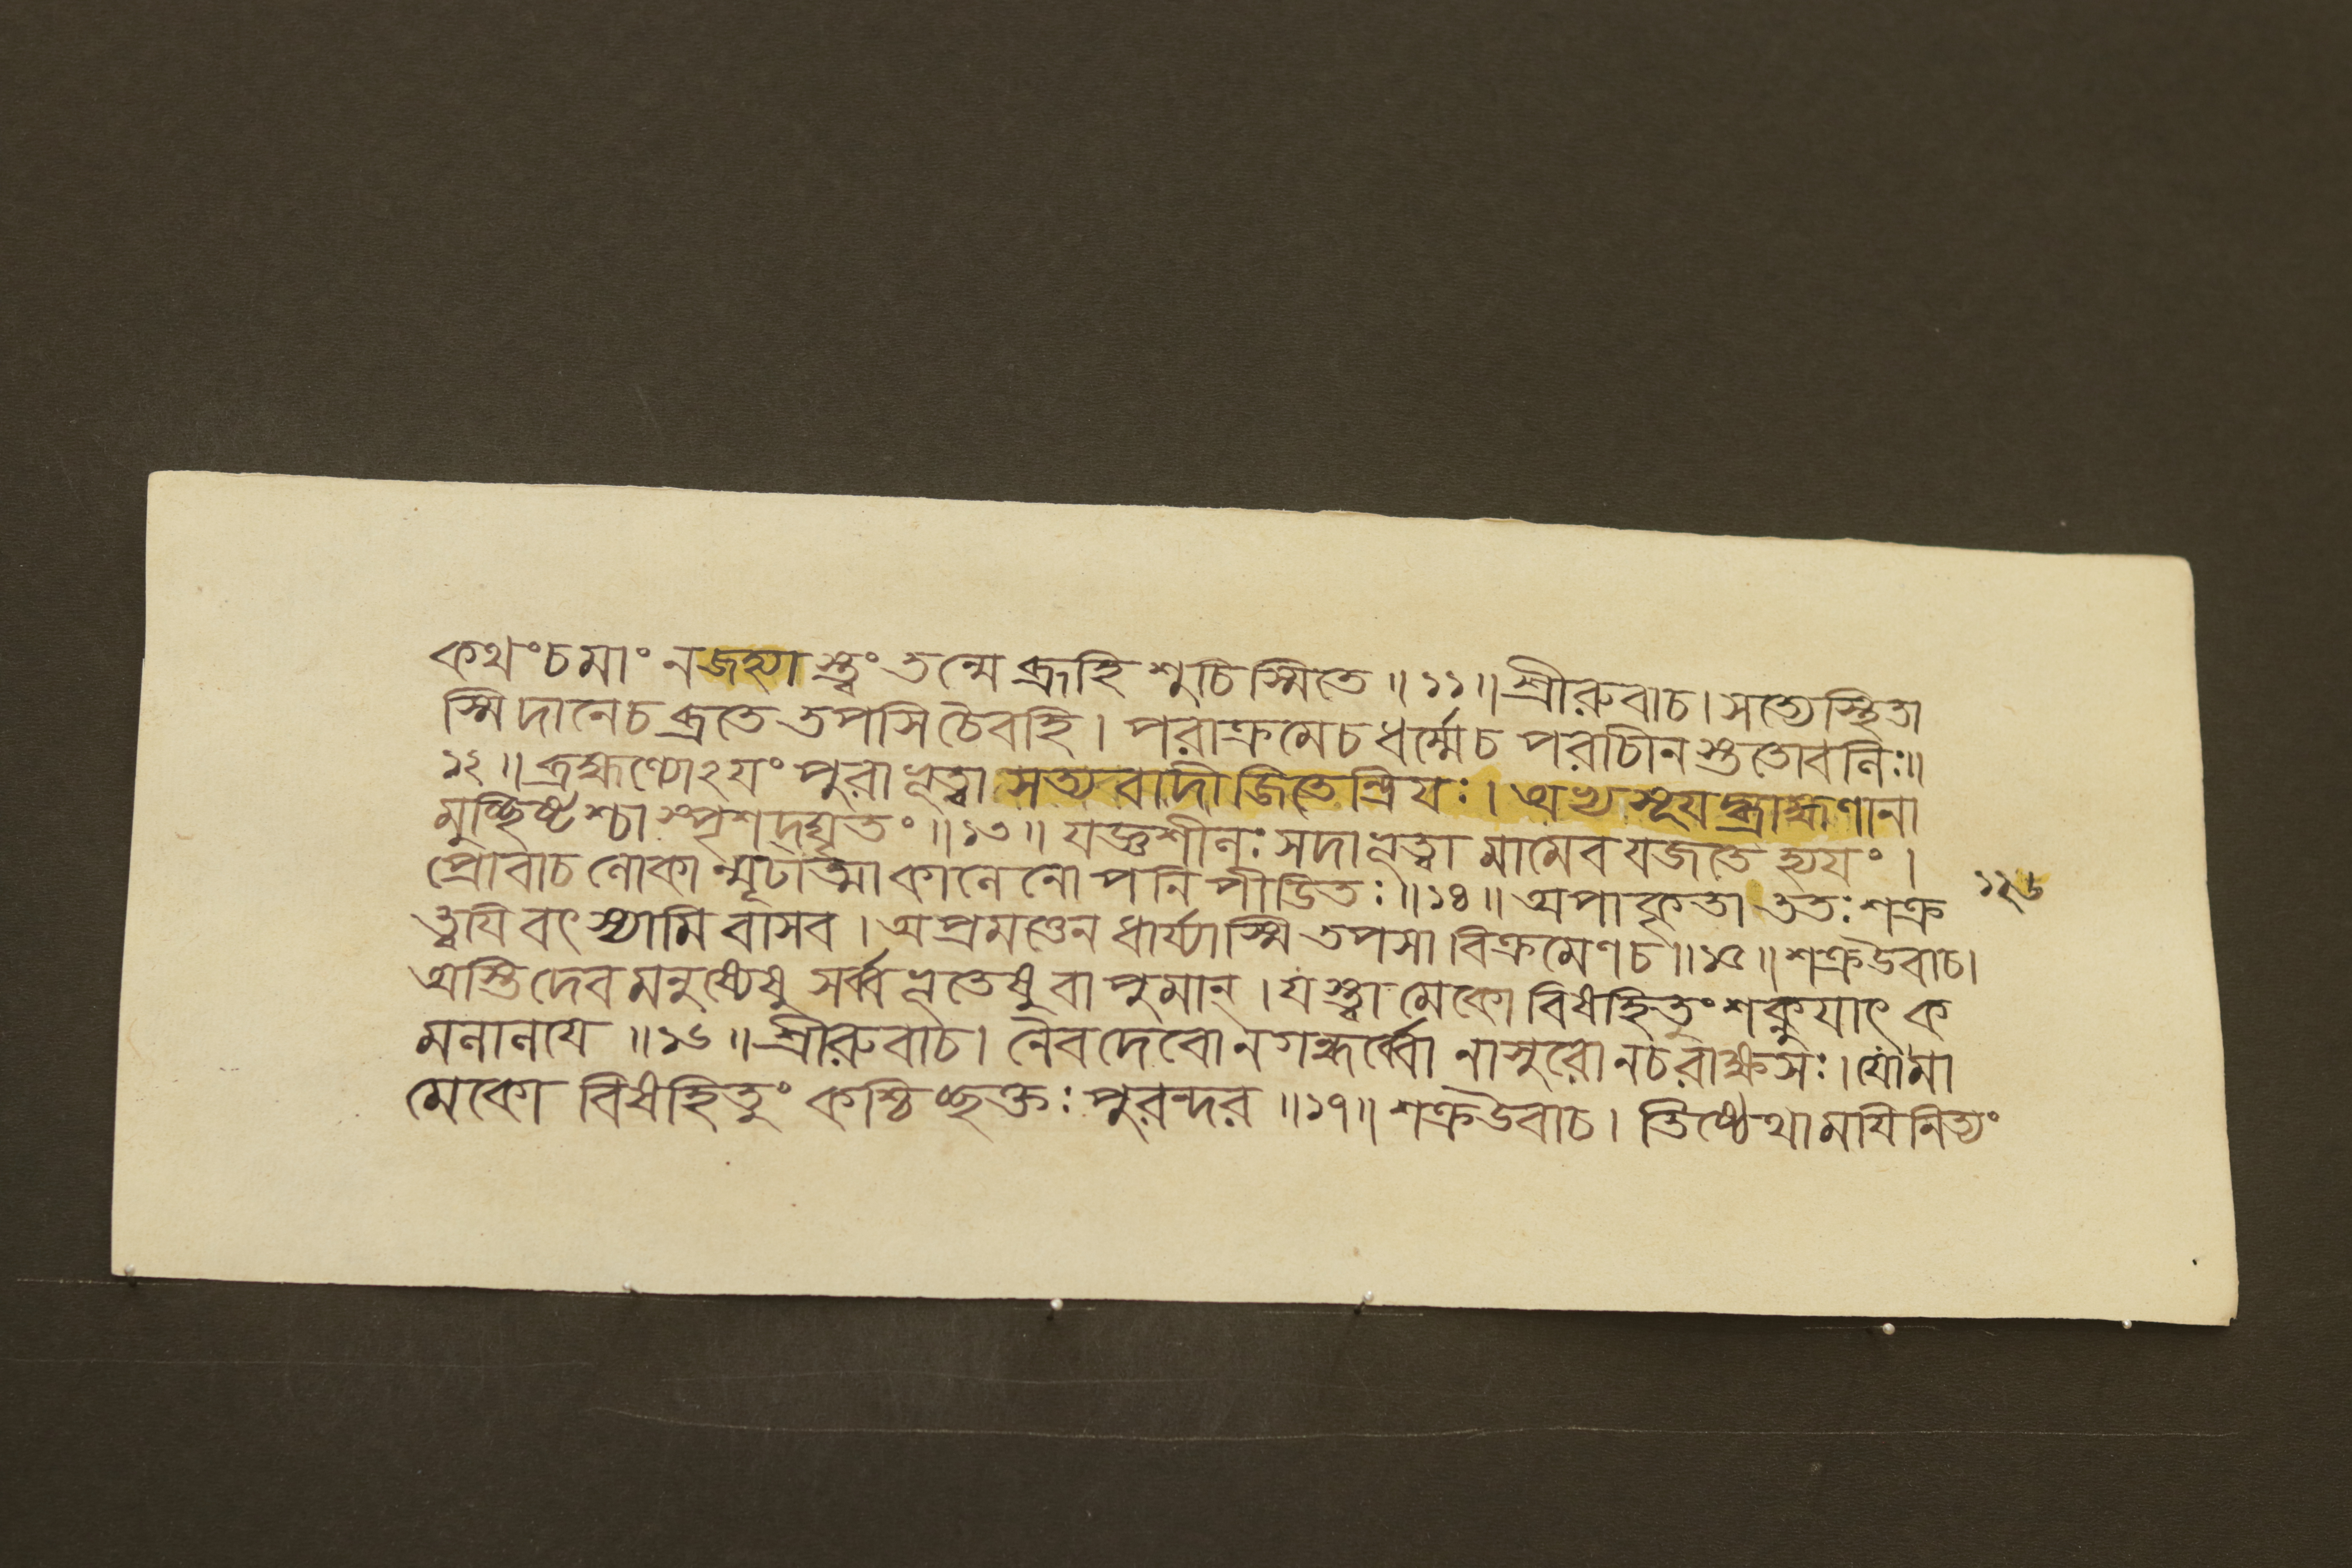 কথংচমাং নজহ্যাস্ত্বং তন্মে ব্রূহি শুচিস্মিতে ॥ ১১॥ শ্রীরুবাচ। সত্যেস্থিতা
স্মি দানেচ ব্রতে তপসি চৈবহি। পরাক্রমেচ ধর্ম্মেচ পরাচীনস্তুতোবলিঃ॥
১২॥ ব্রহ্মণ্যোঽযং পুরা ভূত্বা সত্যবাদী জিতেন্দ্রিযঃ। অভ্যসূযদ্ব্রাহ্মণানা
মুচ্ছিষ্টশ্চাস্পৃশদ্ঘৃতং ॥১৩॥ যজ্ঞশীলঃ সদা ভূত্বা মামেব যজতে হ্যযং।
প্রোবাচ লোকান্মূঢাত্মা কালেনোপনিপীডিতঃ॥১৪॥ অপাকৃতা ততঃ শক্র
ত্বযি বৎস্যামি বাসব। অপ্রমত্তেন ধার্য্যাস্মি তপসা বিক্রমেণচ॥১৫॥ শক্রউবাচ।
অস্তি দেবমনুষ্যেষু সর্ব্বভূতেষু বা পুমান্। যস্ত্বামেকো বিষহিতুং শক্নুযাৎ ক
মলালযে ॥১৬॥ শ্রীরুবাচ। নৈবদেবো নগন্ধর্ব্বো নাসুরো নচরাক্ষসঃ। যোমা
মেকো বিষহিতুং কশ্চিচ্ছক্তঃ পুরন্দর ॥১৭॥ শক্রউবাচ। তিষ্ঠেথা মযি নিত্যং
১২৬